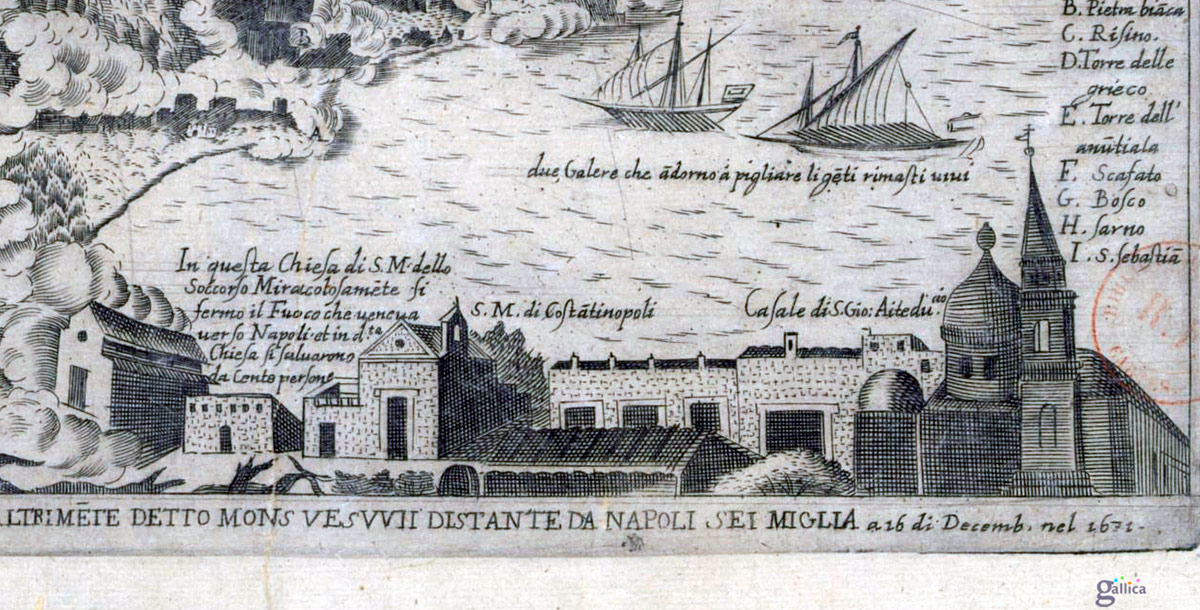 B. Pietra biãca
C. Risino.
D. Torre delle
grieco
E. Torre dell'
anũtiala
F. Scafato
G. Bosco
H. sarno
I. S. sebastia
B
A
due Galere che ãdorno á pigliare li gẽti rimasti uiui
In questa Chiesa di S. M. dello
Soccorso Miracolosamẽte si
fermo il Fuoco che ueneua
uerso Napoli et in d.ta
Chiesa si saluarono
da Cento persone
S. M. di Costãtinopoli
Casale di S. Gio: Aitedu.cio
ALTRIMẼTE DETTO MONS VESVVII DISTANTE DA NAPOLI SEI MIGLIA a 16 di Decemb. nel 1631.
gallica